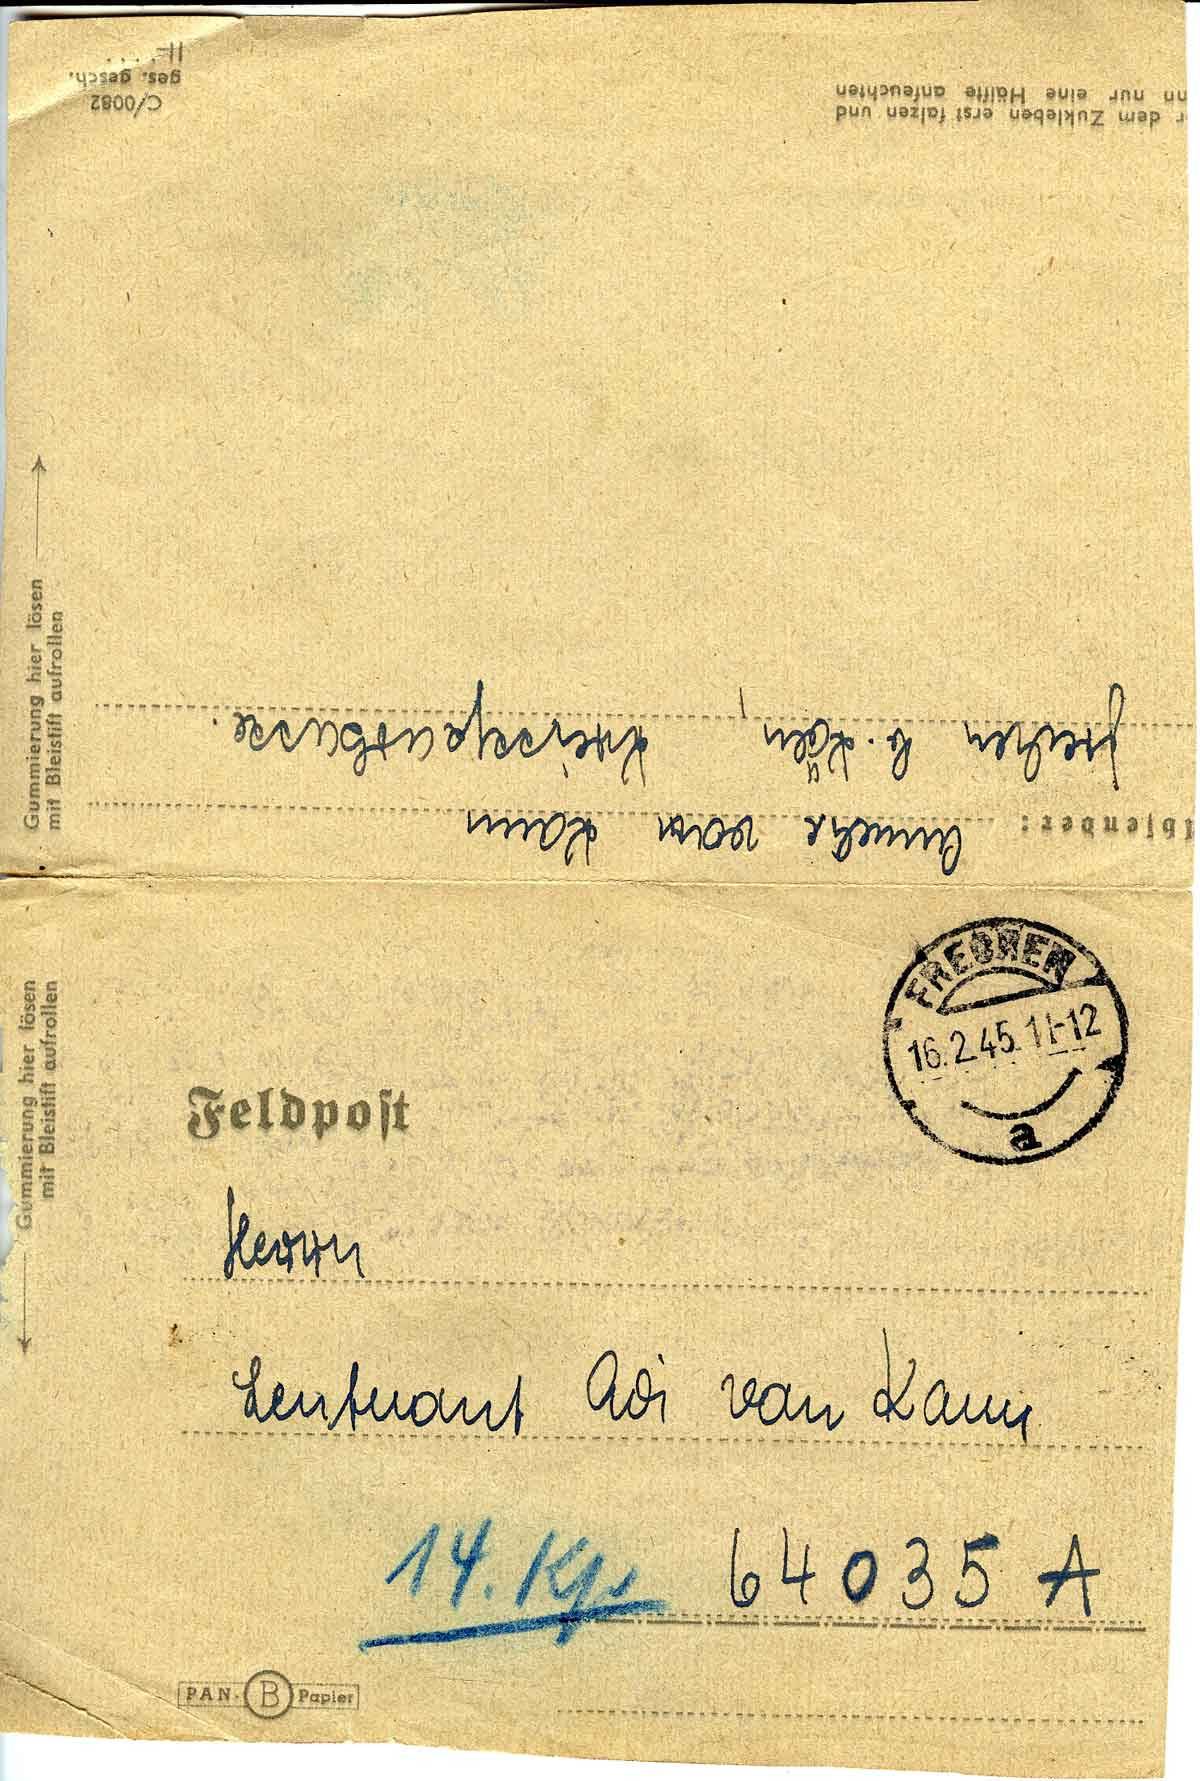 ges. gesch.
C/0082
dem Zukleben erst falzen und
nur eine Hälfte anfeuchten
Gummierung hier lösen
mit Bleistift aufrollen
Absender: Anneke van Kann
Frechen b. Köln,
Gummierung hier lösen
mit Bleistift aufrollen
FRECHEN
16.2.45.11-12
a
Feldpost
Herrn
Leutnant Adi van Kann
14. Kp. 64035 A
PAN- B Papier